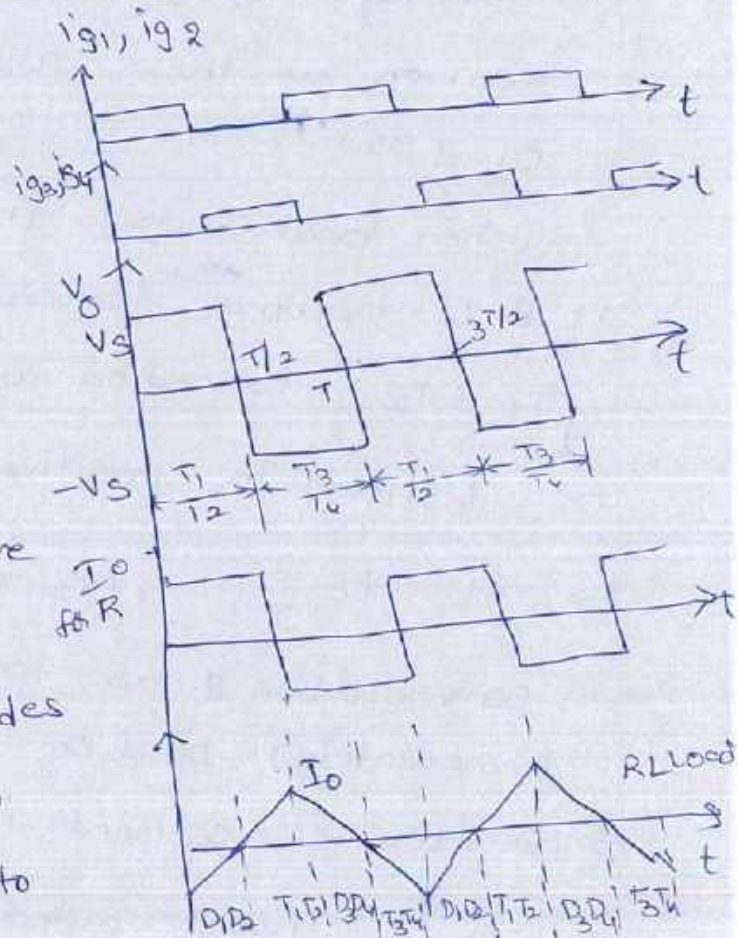 ig1, ig2
t
ig3, ig4
t
Vo
Vs
T/2
T
3T/2
t
-Vs
T1/T2
T3/T4
T1/T2
T3/T4
Io
for R
t
re
des
to
Io
RL Load
t
D1D2 T1T2 D3D4 T3T4 D1D2 T1T2 D3D4 T3T4